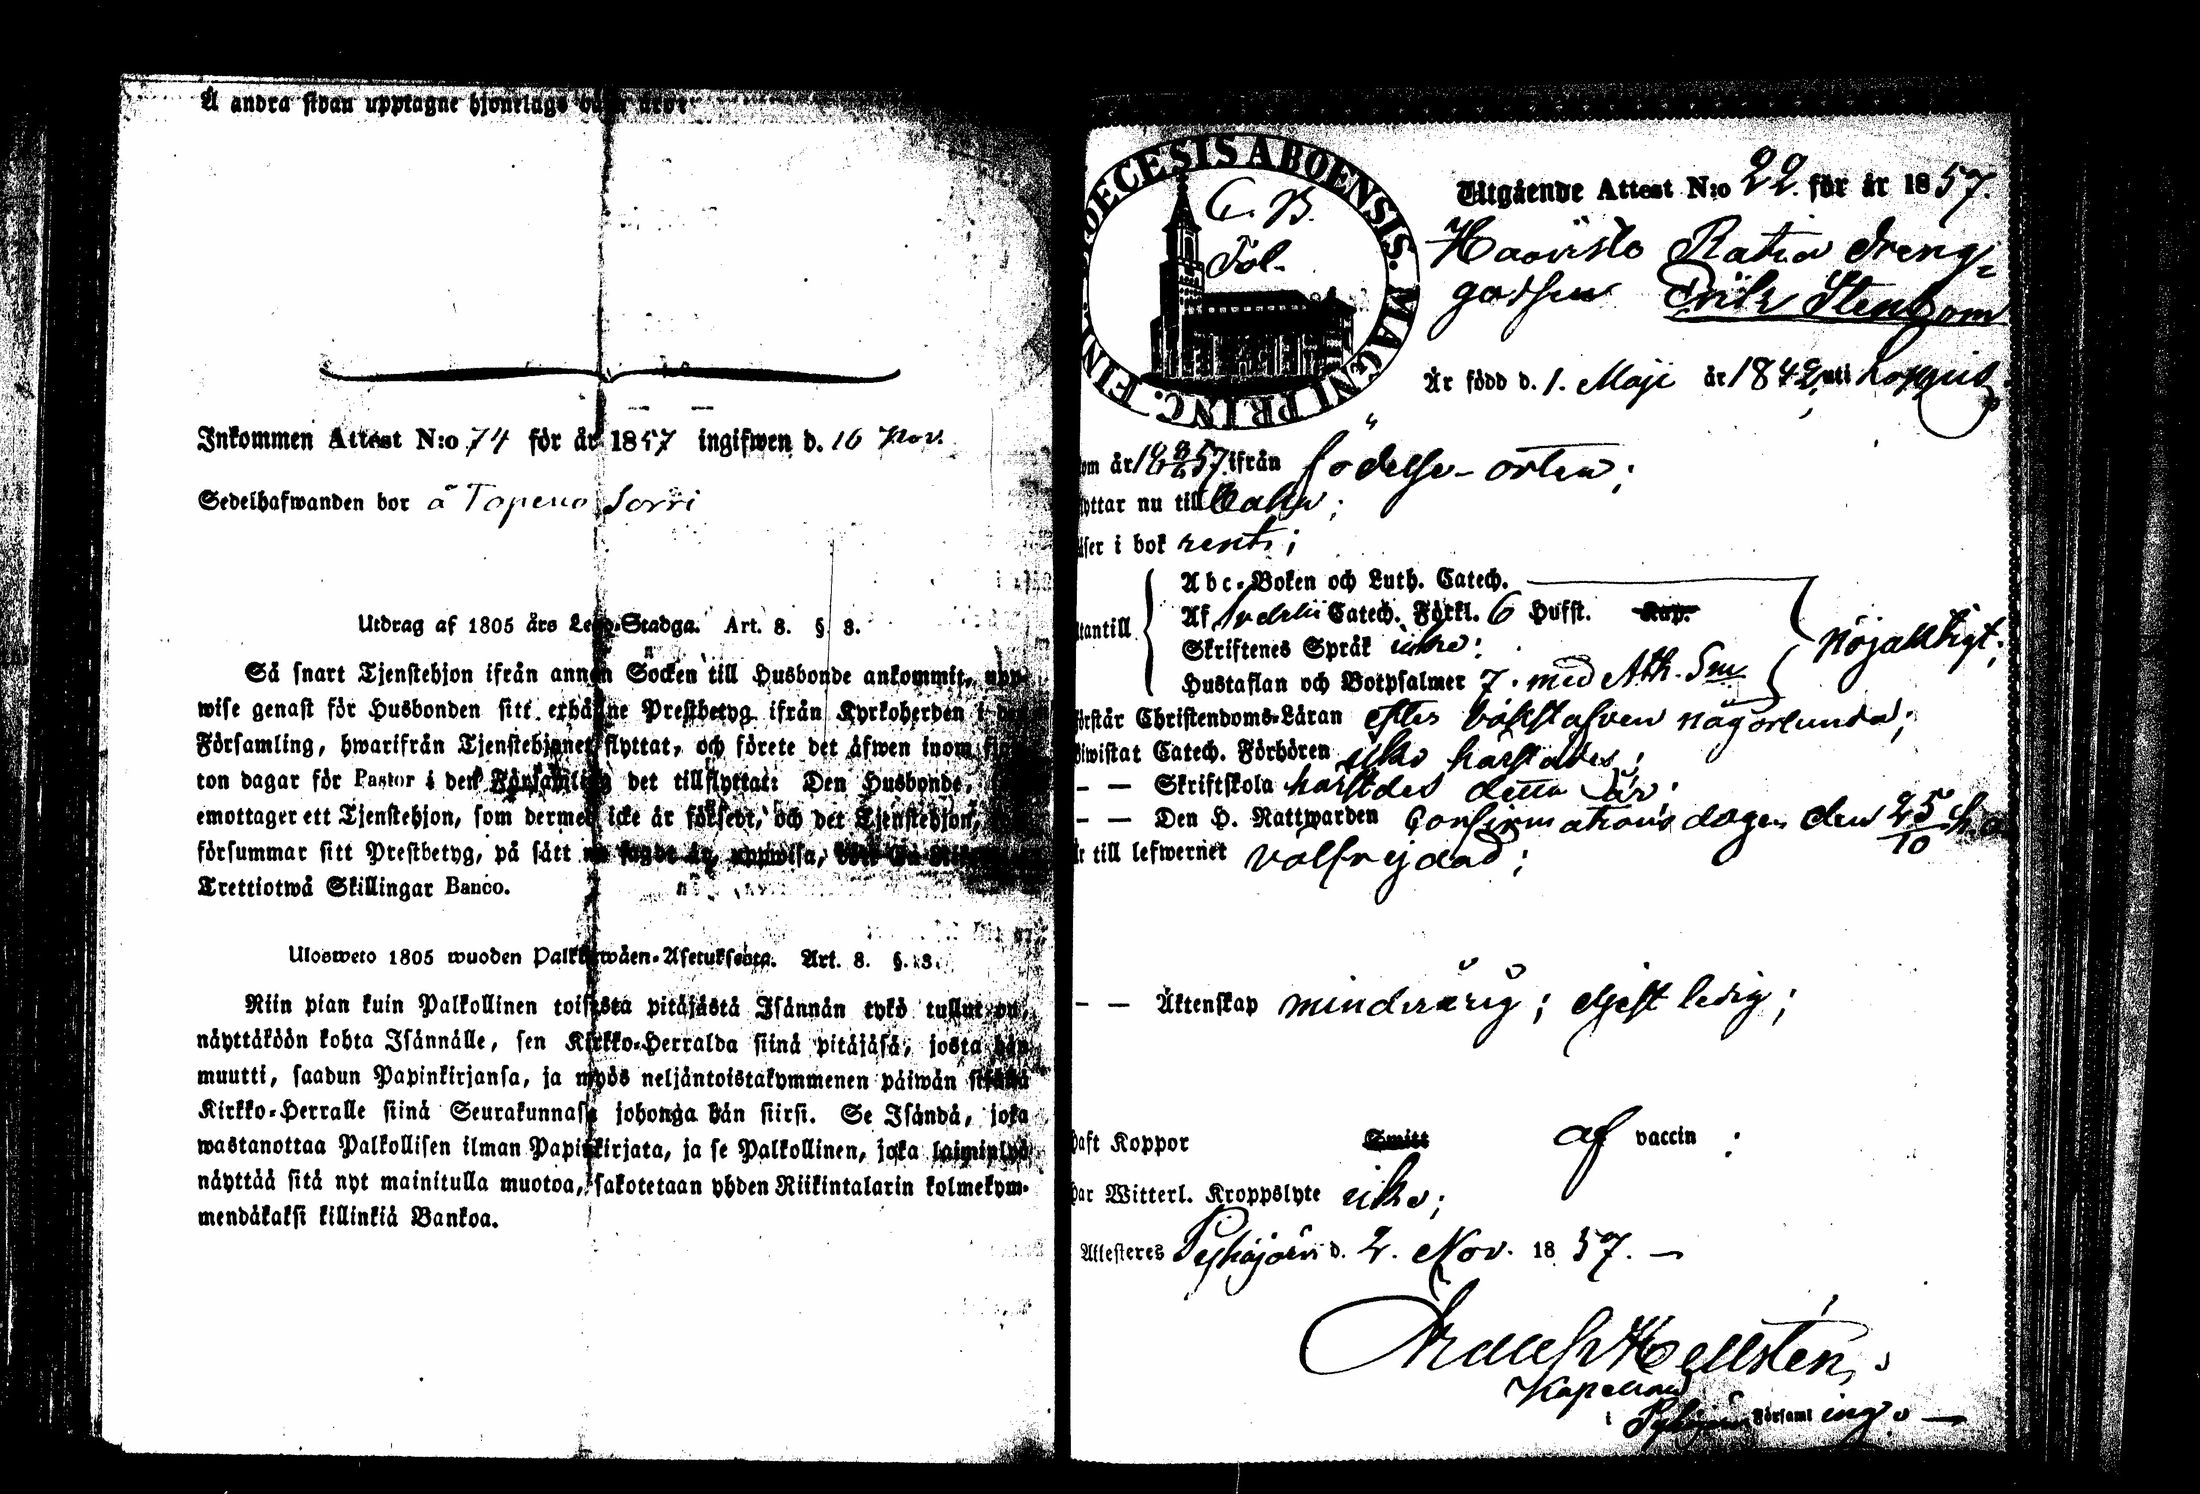 Å andra sidan upptagne hjonelags
Inkommen Attest N:o 74 för år 1857 ingifwen d. 16 Nov.
Sedelhafwanden bor å Topeno Sorri
Utdrag af 1805 års Lego-Stadga. Art. 8. §. 3.
Så snart Tjenstehjon ifrån annan Socken till Husbonde ankommit, upp-
wise genast för Husbonden sitt erhållne Prestbetyg ifrån Kyrkoherden i
Församling, hwarifrån Tjenstehjonet flyttat, och förete det äfwen inom
ton dagar för Pastor i den Församling det tillflyttat: Den Husbonde,
emottager ett Tjenstehjon, som dermed icke är försedt, och det Tjenstehjon,
försummar sitt Prestbetyg, på sätt nu sagdt är, uppwisa,
Trettiotwå Skillingar Banco.
Ulosweto 1805 wuoden Palkkawäen-Asetuksesta. Art. 8. §. 3.
Niin pian kuin Palkollinen toisesta pitäjästä Isännän tykö tullut on,
näyttäköön kohta Isännälle, sen Kirkko-Herralda siinä pitäjäsä, josta hän
muutti, saadun Papinkirjansa, ja myös neljäntoistakymmenen päiwän sisällä
Kirkko-Herralle siinä Seurakunnasa johonga hän siirsi. Se Isändä, joka
wastanottaa Palkollisen ilman Papinkirjata, ja se Palkollinen, joka laiminlyö
näyttää sitä nyt mainitulla muotoa, sakotetaan yhden Riikintalarin kolmekym-
mendäkaksi killinkiä Bankoa.
DIOECESIS ABOENSIS. MAGNI PRINC. FINL.
C. B.
Fol.
Utgående Attest N:o 22. för år 1857.
Haavisto Ratia dreng-
gossen Erik Stenbom
Är född d. 1. Maji år 1842, uti Loppis
om år 18 57. ifrån födelse-orten;
flyttar nu till
läser i bok rent;
Utantill
Abc-Boken och Luth. Catech.
Af Catech. Förkl. 6 Hufst. Kap.
Skriftenes Språk icke;
Hustaflan och Botpsalmer 7. med Ath. Sm
nöjaktigt;
förstår Christendoms-Läran efter bokstafven någorlunda;
biwistat Catech. Förhören icke
— — Skriftskola detta år;
— — Den H. Nattwarden Confirmations dagen den 25/10 h. a.
är till lefwernet välfrejdad;
— — Äktenskap minderårig; ledig;
haft Koppor Smitt af vaccin ;
har Witterl. Kroppslyte icke;
Attesteres d. 2. Nov. 1857. —
Hellstén,
Kapellan
i Församling. —